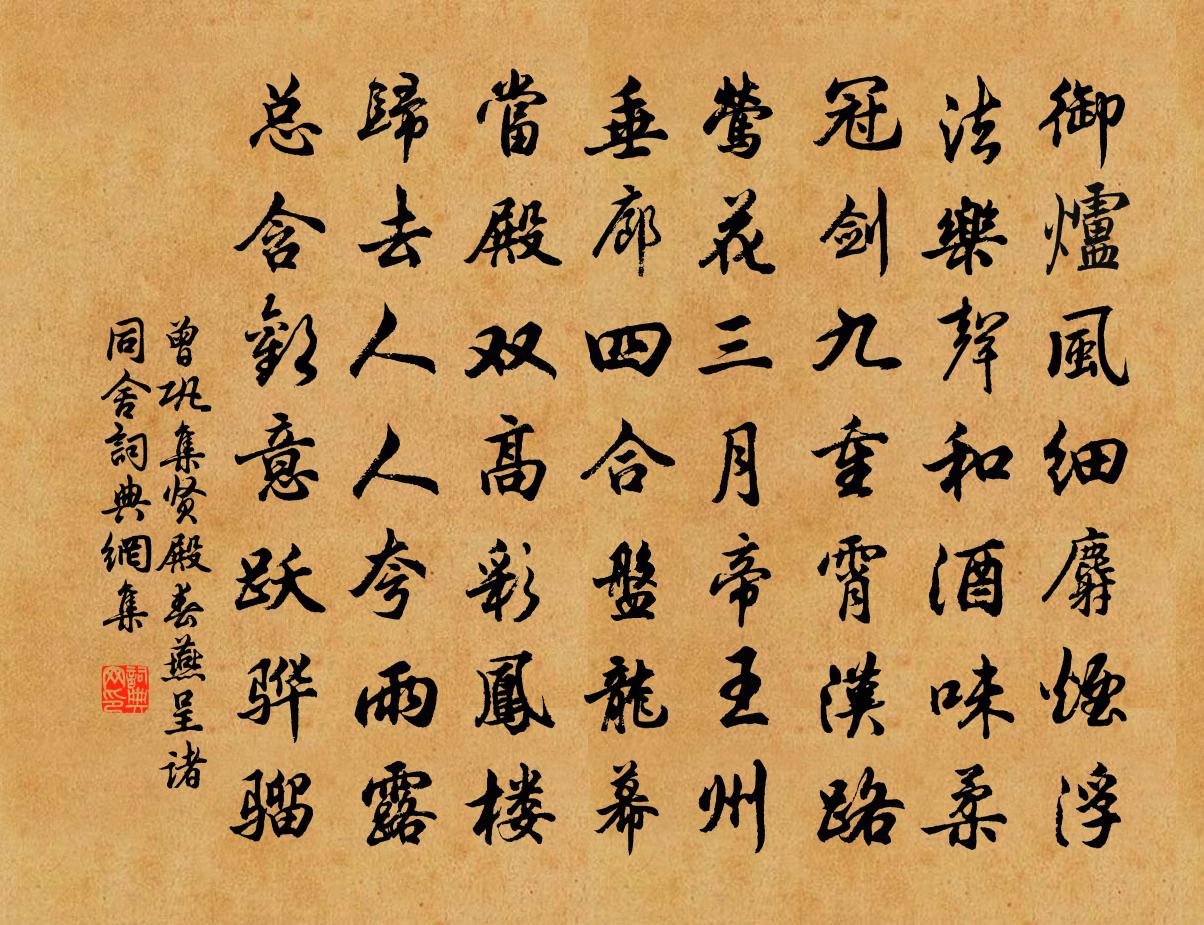 御爐風细麝煙浮
法樂聲和酒味柔
冠剑九重霄漢路
鶯花三月帝王州
垂廊四合盤龍幕
當殿双高彩鳳楼
歸去人人夸雨露
总含歡意跃骅骝
曾巩集贤殿春燕呈诸
同舍詞典網集
詞典
网印